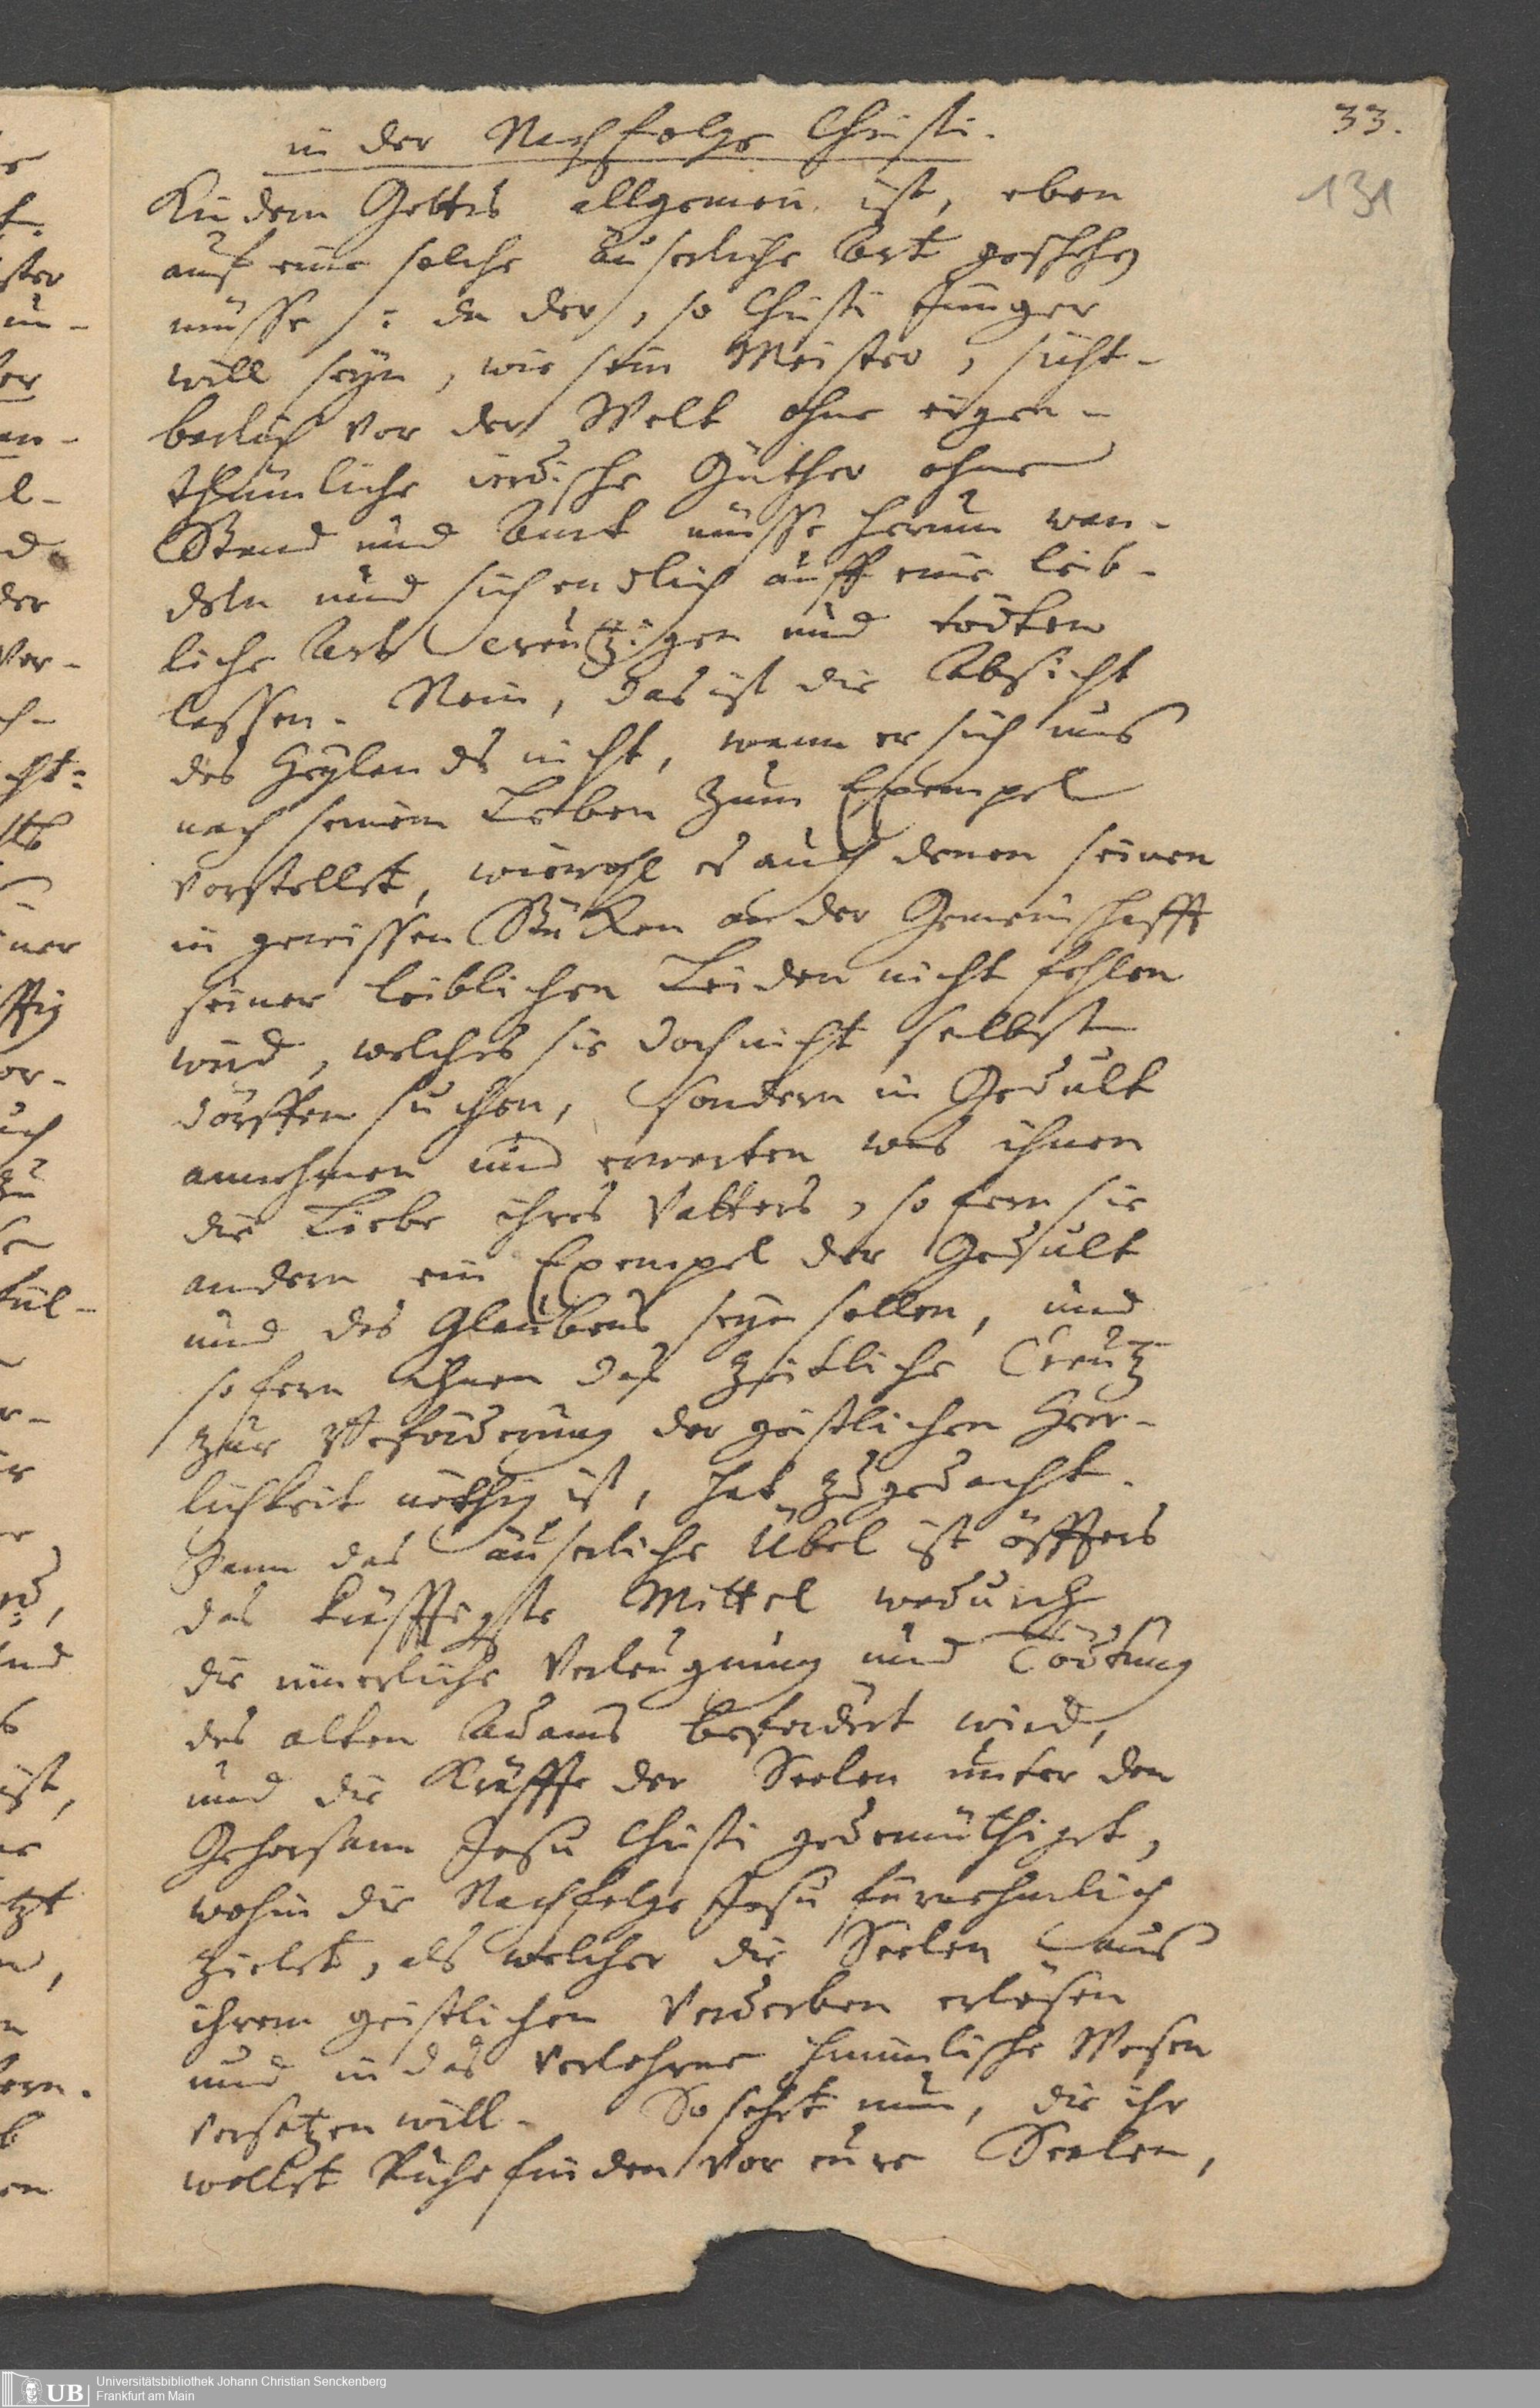 33.
131
in der Nachfolge Christi.
Kindern Gottes allgemein ist, eben
auf eine solche äuserliche Art geschehen
müsse /: da der, so Christi Jünger
will seyn, wie sein Meister, sicht-
barlich vor der Welt ohne eigen-
thümliche irdische Güther ohne
Stand und Amt müsse herum wan-
deln und sich endlich auff eine leib-
liche Art Creutzigen und tödten
lassen. Nein, das ist die Absicht
des Heylands nicht, wann er sich uns
nach seinem Leben zum Exempel
vorstellet, wiewohl es auch denen seinen
in gewissen Stücken an der Gemeinschafft
seiner leiblichen Leiden nicht fehlen
wird, welches sie doch nicht selbst
dörffen suchen, sondern in Gedult
annehmen und erwarten was ihnen
die Liebe ihres Vatters, so fern sie
andern ein Exempel der Gedult
und des Glaubens seyn sollen, und
so fern ihnen das zeitliche Creutz
zur Beförderung der geistlichen Herr-
lichkeit nöthig ist, hat zugedacht.
Dann das äuserliche Übel ist öffters
das kräfftigste Mittel wodurch
die innerliche Verleugnung und Tödtung
des alten Adams befördert wird,
und die Kräffte der Seelen unter den
Gehorsam Jesu Christi gedemüthiget,
wohin die Nachfolge Jesu fürnehmlich
zielet, als welcher die Seelen aus
ihrem geistlichen Verderben erlösen
und in das verlohrne himmlische Wesen
versetzen will. So sehet nun, die ihr
wollet Ruhe finden vor eure Seelen,
UB
Universitätsbibliothek Johann Christian Senckenberg
Frankfurt am Main